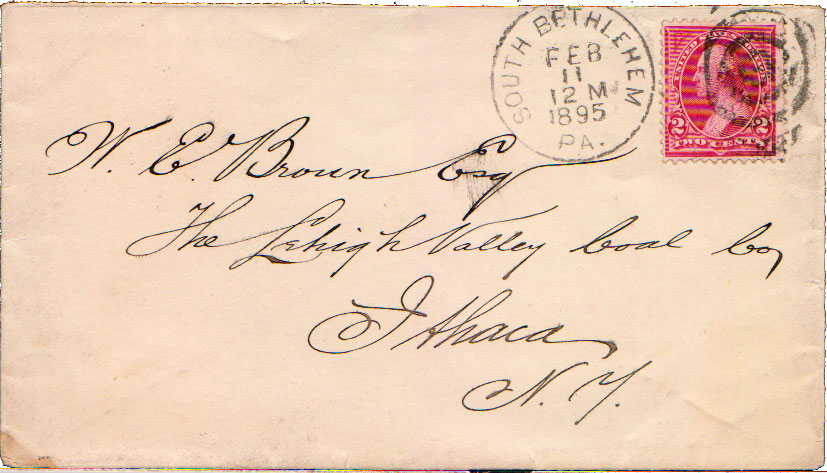 SOUTH BETHLEHEM
FEB
11
12 M
1895
PA.
UNITED STATES POSTAGE
2 2
TWO CENTS
W. E. Brown Esq
The Lehigh Valley Coal Co,
Ithaca
N. Y.